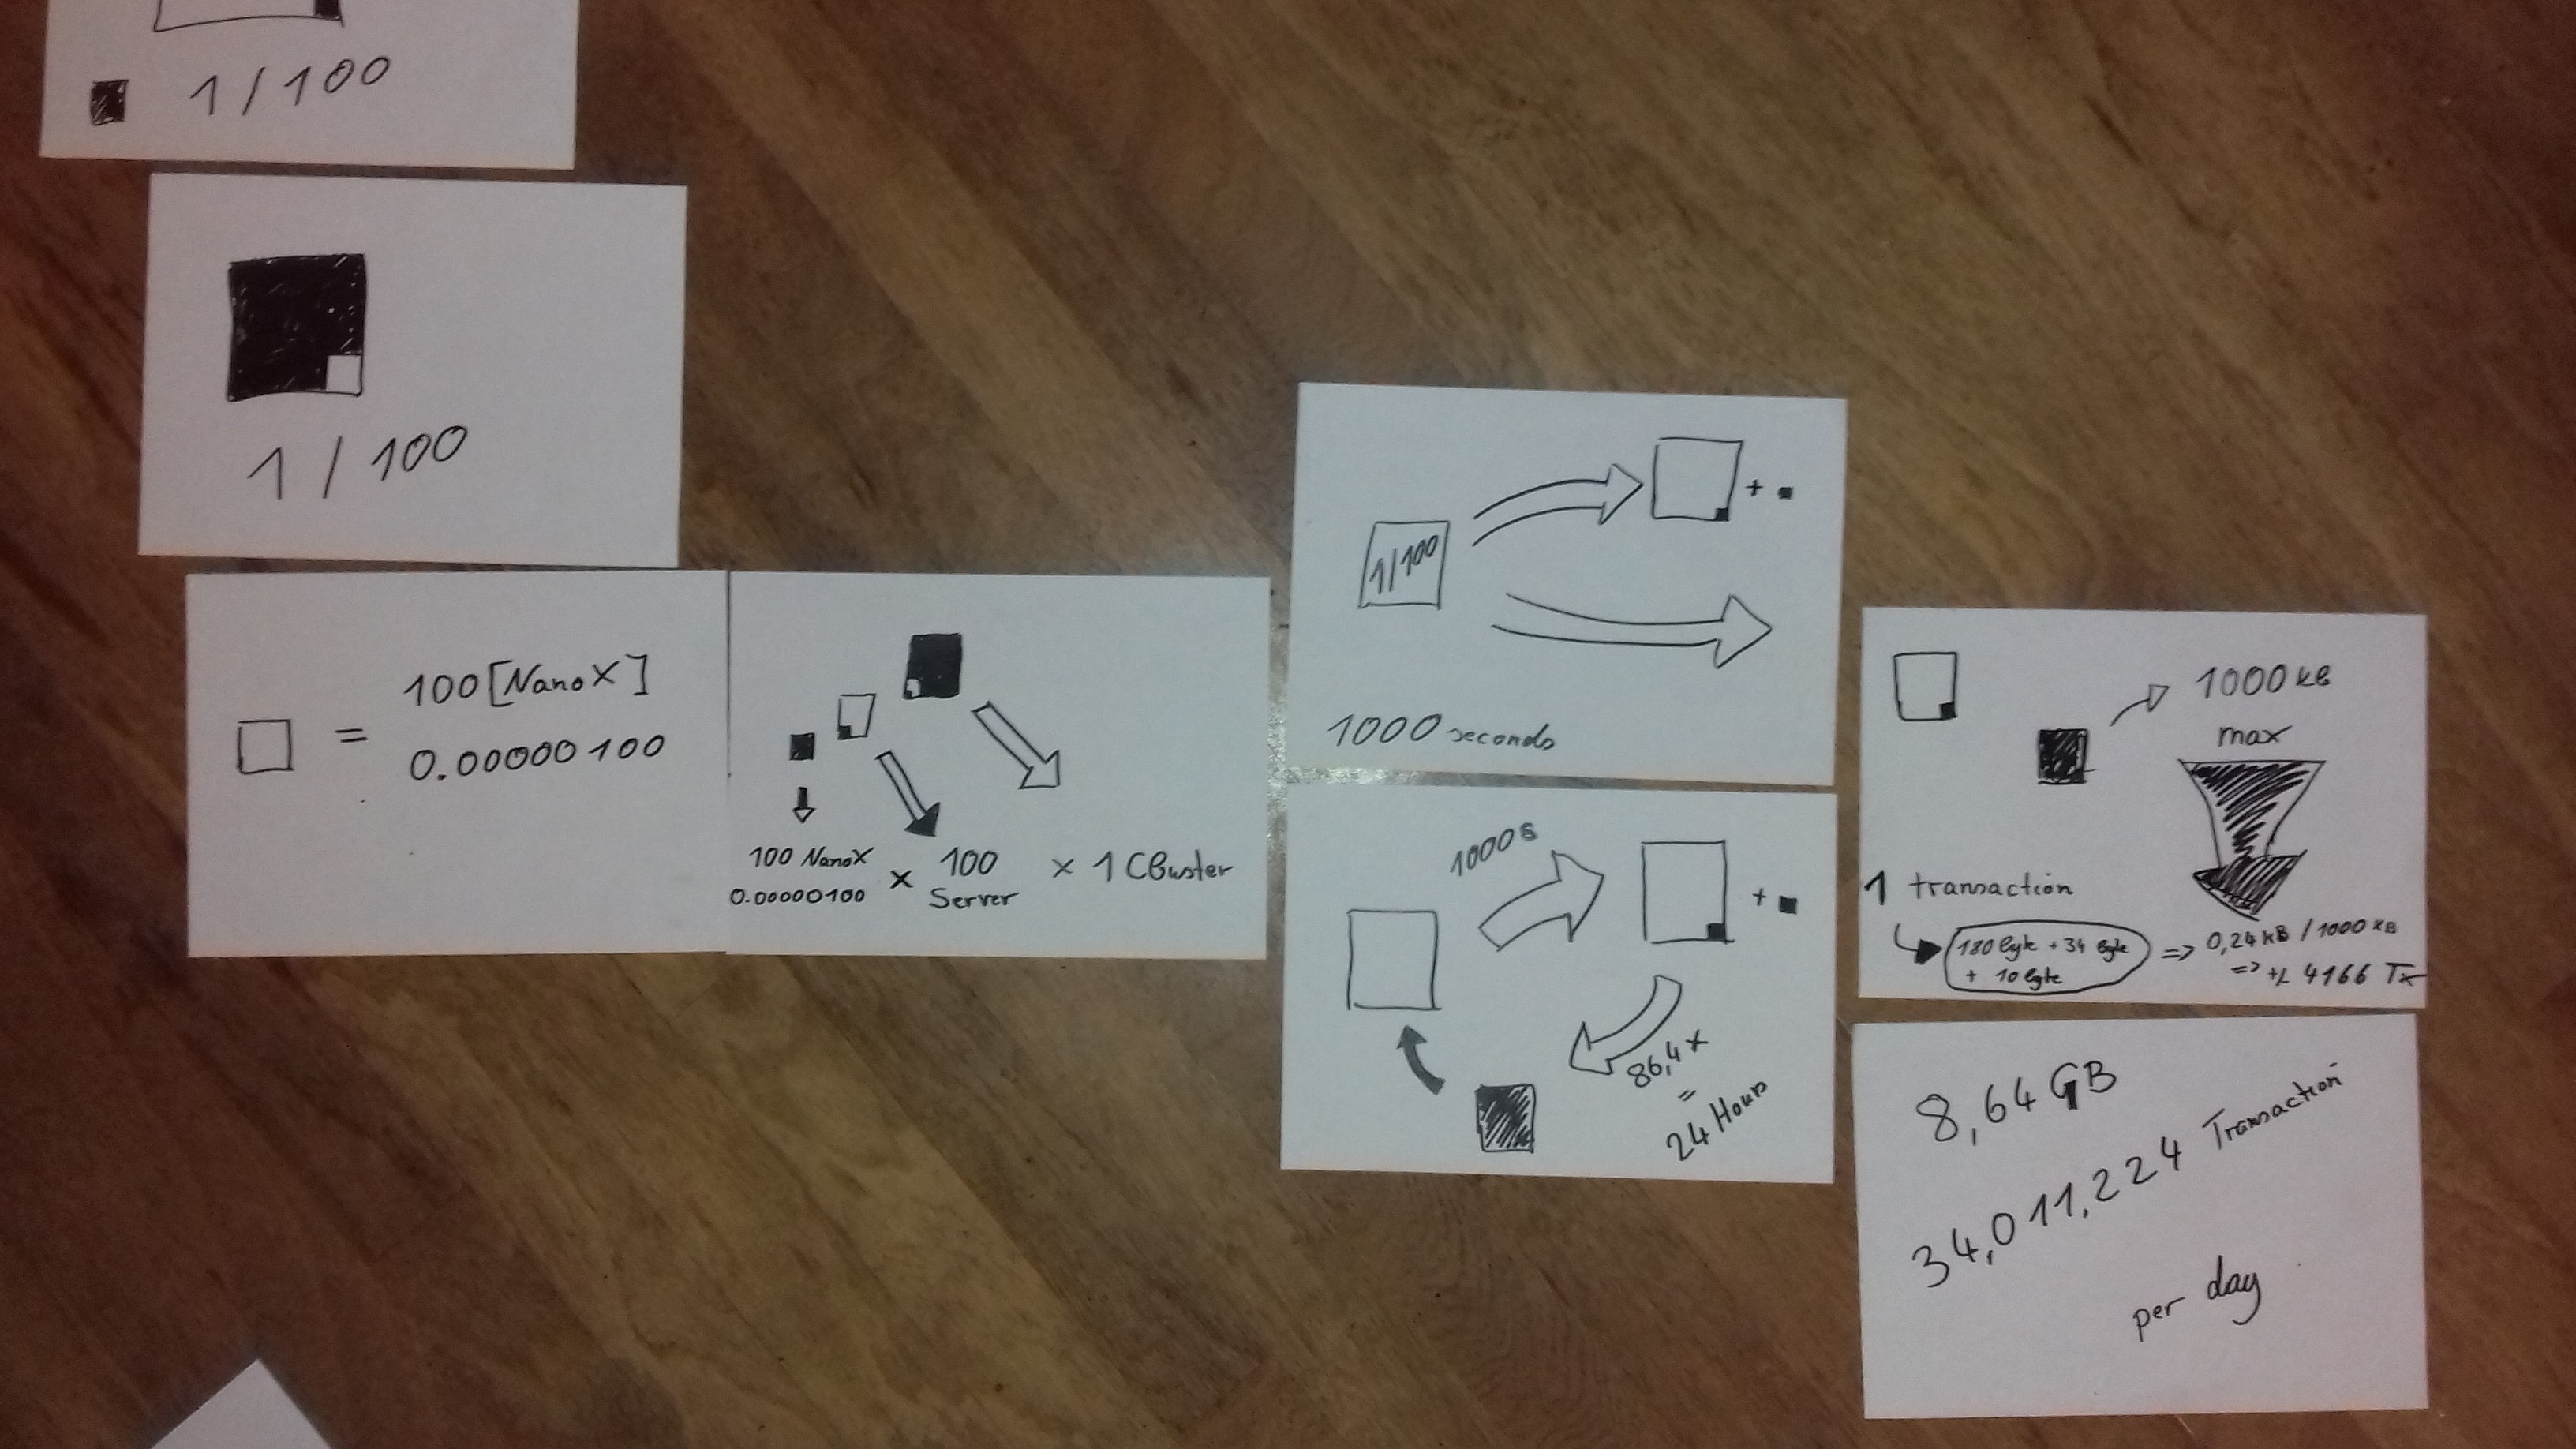 1/100
1/100
= 100 [NanoX]
0.00000100
100 NanoX
0.00000100
x 100
Server
x 1 Cluster
1/100
+
1000 seconds
1000s
+
86,4x
=
24 Hours
1000 kB
max
1 transaction
180 byte + 34 byte
+ 10 byte
=> 0,24 kB / 1000 kB
=> +/- 4166 Tx
8,64 GB
34,011,224 Transaction
per day